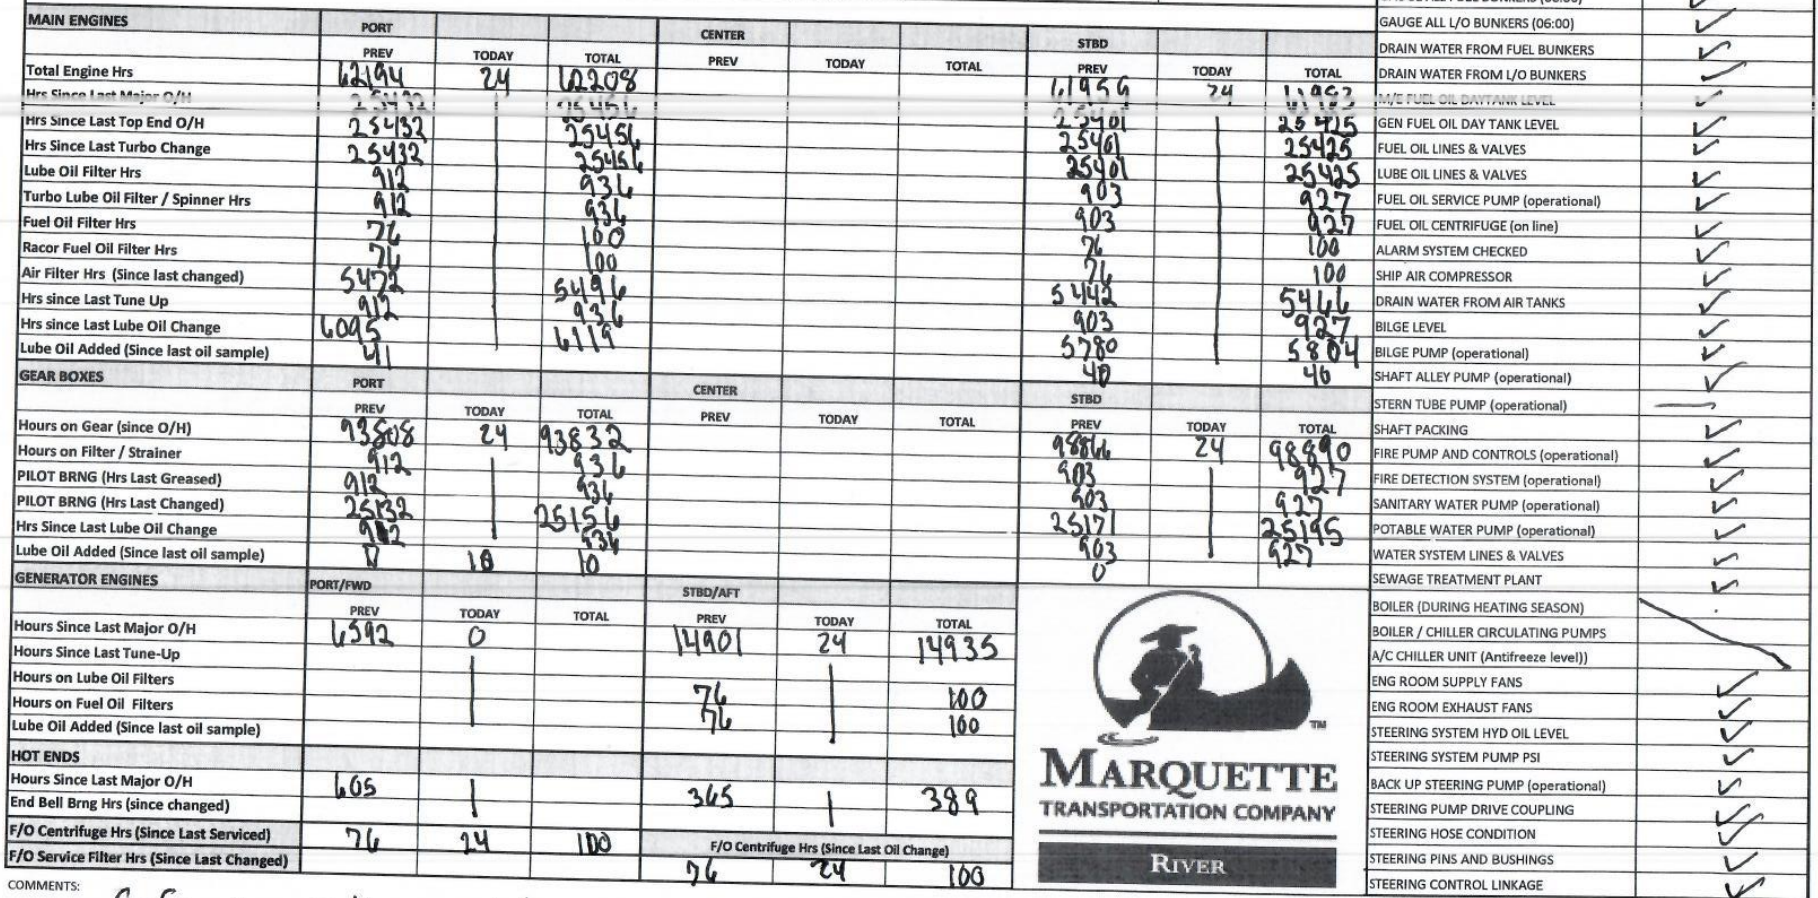 MAIN ENGINES PORT CENTER STBD
PREV TODAY TOTAL PREV TODAY TOTAL PREV TODAY TOTAL
Total Engine Hrs 62194 24 62208 61959 24 61983
Hrs Since Last Major O/H 25432 25456 25401 25425
Hrs Since Last Top End O/H 25432 25456 25401 25425
Hrs Since Last Turbo Change 25432 25456 25401 25425
Lube Oil Filter Hrs 912 936 903 927
Turbo Lube Oil Filter / Spinner Hrs 912 936 903 927
Fuel Oil Filter Hrs 76 100 76 100
Racor Fuel Oil Filter Hrs 76 100 76 100
Air Filter Hrs (Since last changed) 5472 5496 5442 5466
Hrs since Last Tune Up 912 936 903 927
Hrs since Last Lube Oil Change 6095 6119 5780 5804
Lube Oil Added (Since last oil sample) 41 40 40
GEAR BOXES PORT CENTER STBD
PREV TODAY TOTAL PREV TODAY TOTAL PREV TODAY TOTAL
Hours on Gear (since O/H) 93808 24 93832 98866 24 98890
Hours on Filter / Strainer 912 936 903 927
PILOT BRNG (Hrs Last Greased) 912 936 903 927
PILOT BRNG (Hrs Last Changed) 25132 25156 25171 25195
Hrs Since Last Lube Oil Change 912 936 903 927
Lube Oil Added (Since last oil sample) 0 10 10 0
GENERATOR ENGINES PORT/FWD STBD/AFT
PREV TODAY TOTAL PREV TODAY TOTAL
Hours Since Last Major O/H 6592 0 14901 24 14935
Hours Since Last Tune-Up
Hours on Lube Oil Filters 76 100
Hours on Fuel Oil Filters 76 100
Lube Oil Added (Since last oil sample)
HOT ENDS
Hours Since Last Major O/H 605 365 389
End Bell Brng Hrs (since changed)
F/O Centrifuge Hrs (Since Last Serviced) 76 24 100 F/O Centrifuge Hrs (Since Last Oil Change)
F/O Service Filter Hrs (Since Last Changed) 76 24 100
COMMENTS:
MARQUETTE
TRANSPORTATION COMPANY
RIVER
TM
GAUGE ALL L/O BUNKERS (06:00)
DRAIN WATER FROM FUEL BUNKERS
DRAIN WATER FROM L/O BUNKERS
M/E FUEL OIL DAYTANK LEVEL
GEN FUEL OIL DAY TANK LEVEL
FUEL OIL LINES & VALVES
LUBE OIL LINES & VALVES
FUEL OIL SERVICE PUMP (operational)
FUEL OIL CENTRIFUGE (on line)
ALARM SYSTEM CHECKED
SHIP AIR COMPRESSOR
DRAIN WATER FROM AIR TANKS
BILGE LEVEL
BILGE PUMP (operational)
SHAFT ALLEY PUMP (operational)
STERN TUBE PUMP (operational)
SHAFT PACKING
FIRE PUMP AND CONTROLS (operational)
FIRE DETECTION SYSTEM (operational)
SANITARY WATER PUMP (operational)
POTABLE WATER PUMP (operational)
WATER SYSTEM LINES & VALVES
SEWAGE TREATMENT PLANT
BOILER (DURING HEATING SEASON)
BOILER / CHILLER CIRCULATING PUMPS
A/C CHILLER UNIT (Antifreeze level))
ENG ROOM SUPPLY FANS
ENG ROOM EXHAUST FANS
STEERING SYSTEM HYD OIL LEVEL
STEERING SYSTEM PUMP PSI
BACK UP STEERING PUMP (operational)
STEERING PUMP DRIVE COUPLING
STEERING HOSE CONDITION
STEERING PINS AND BUSHINGS
STEERING CONTROL LINKAGE